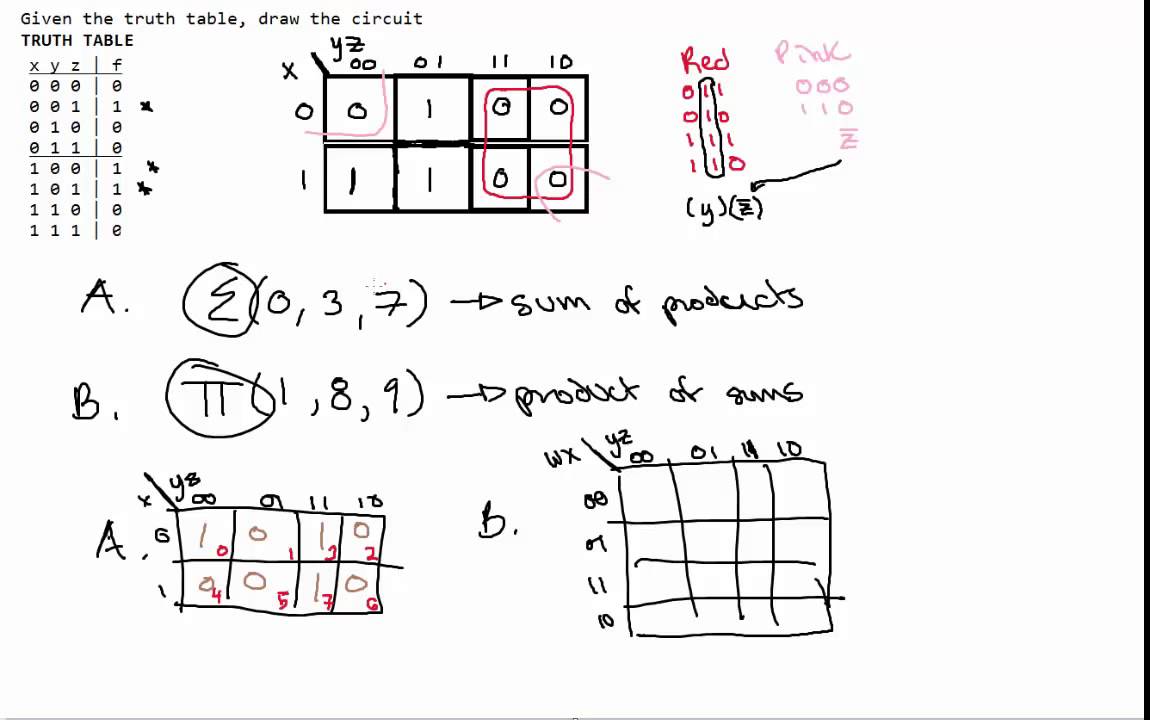 Given the truth table, draw the circuit
TRUTH TABLE
x y z | f
0 0 0 | 0
0 0 1 | 1 *
0 1 0 | 0
0 1 1 | 0
1 0 0 | 1 *
1 0 1 | 1 *
1 1 0 | 0
1 1 1 | 0
yz
x 00 01 11 10
0 0 1 0 0
1 1 1 0 0
Red
011
010
111
110
Pink
000
110
z̅
(y)(z̅)
A. Σ(0, 3, 7) → sum of products
B. π(1, 8, 9) → product of sums
A.
x yz
00 01 11 10
0 1 0 0 1 1 3 0 2
1 0 4 0 5 1 7 0 6
B.
wx yz
00 01 11 10
00
01
11
10